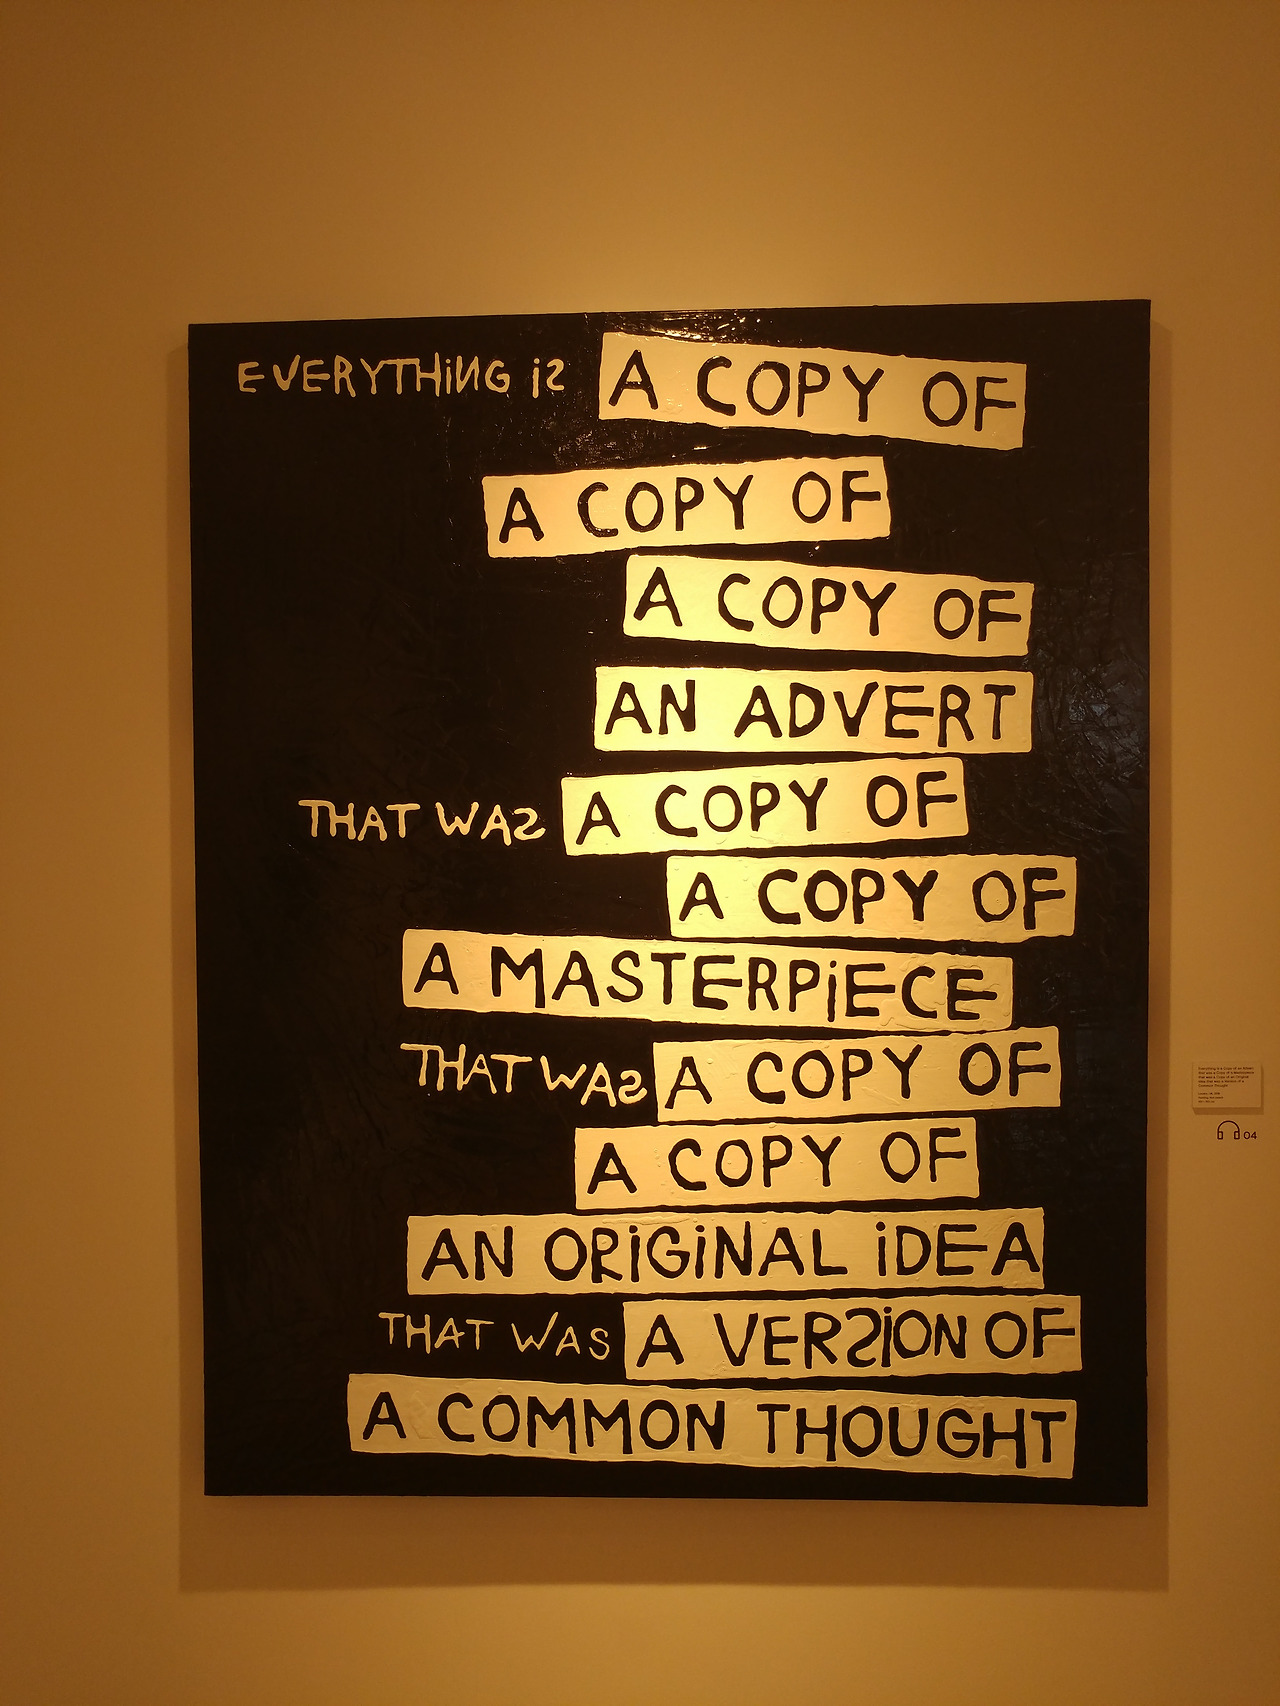 EVERYTHiNG iS A COPY OF
A COPY OF
A COPY OF
AN ADVERT
THAT WAS A COPY OF
A COPY OF
A MASTERPiECE
THAT WAS A COPY OF
A COPY OF
AN ORiGiNAL iDEA
THAT WAS A VERSiON OF
A COMMON THOUGHT
04